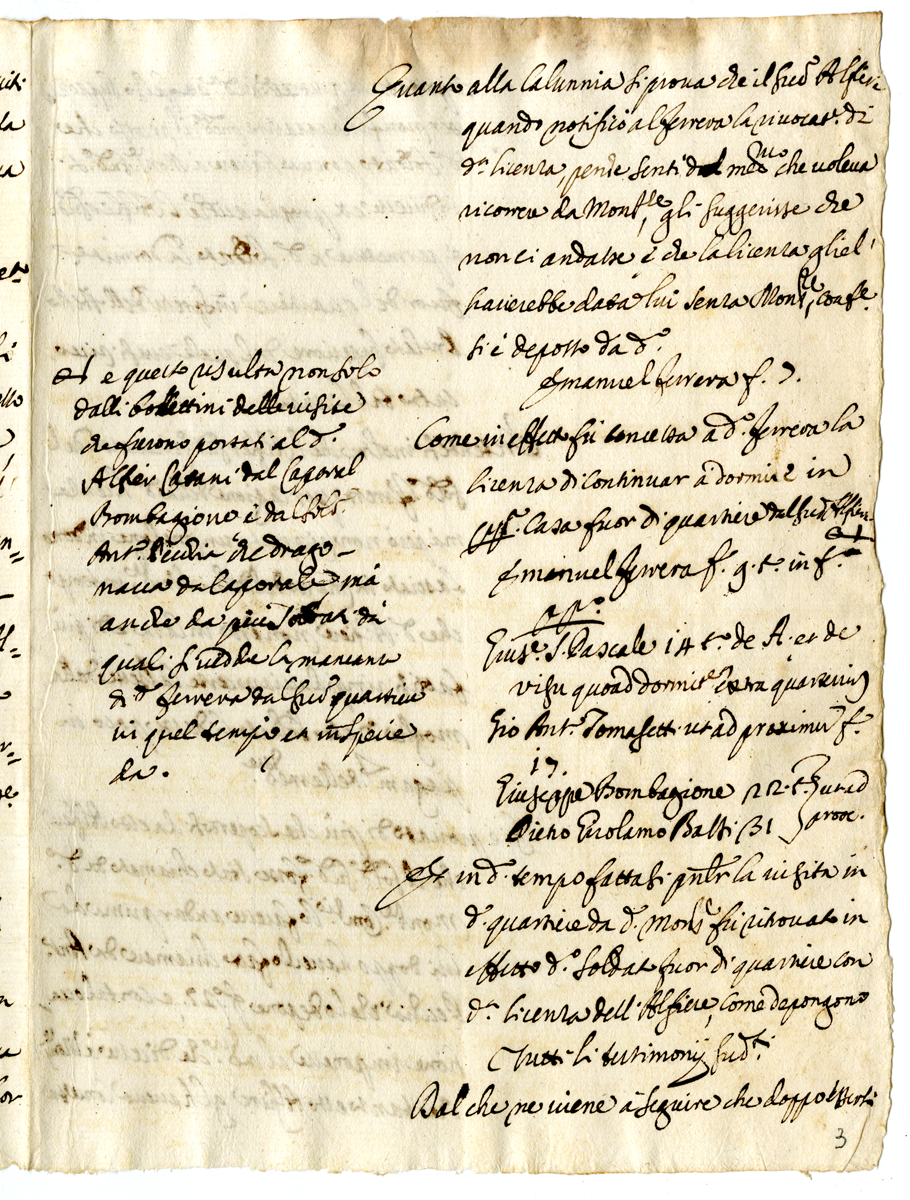 Quanto alla Calunnia si prova che il sud.º Alfier
quando notificò al Ferrera la rivocat. di
d.ª licenza, perche sentì dal med.mo che voleva
ricorrere da Mons.re, gli suggerisse che
non ci andasse è che la licenza gliel'
haverebbe data lui senza Mons.re, come
si è deposto da d.º
Emanuel Ferrera f. 7.
Come in effetto fù concessa a d.º Ferrera la
licenza di continuar à dormire in
Casa fuor di quartiere dal sud.º Alfier
Emanuel Ferrera f. 9. t.º in f.
Gius.e S. Pascale 14 t.º de A. et de
visu quoad dormit.e extra quarterium
Gio Ant.º Tomasett. ut ad proximum f.
17.
Giuseppe Bombagione 22. t.º ut ad
Pietro Girolamo Balti 31 prox.
Et in d.º tempo fattasi la visita in
d.º quartiere da d.º Mons.r fù ritrovato in
effetto d.º soldato fuor di quartiere con
d.ª licenza dell'Alfiere, come depongono
Tutti li testimonij sud.ti
Dal che ne viene à seguire che doppo
3
e questo risulta non solo
dalli bollettini delle visite
che furono portati al d.º
Alfier Casani dal Caporal
Bombagione è dal sold.
Ant.º Vecchia che
nava da Caporale, mà
anche da più soldati dà
quali si vedde la mancanza
di d.º Ferrera dal sud.º quartiere
in quel tempo et in specie
da.